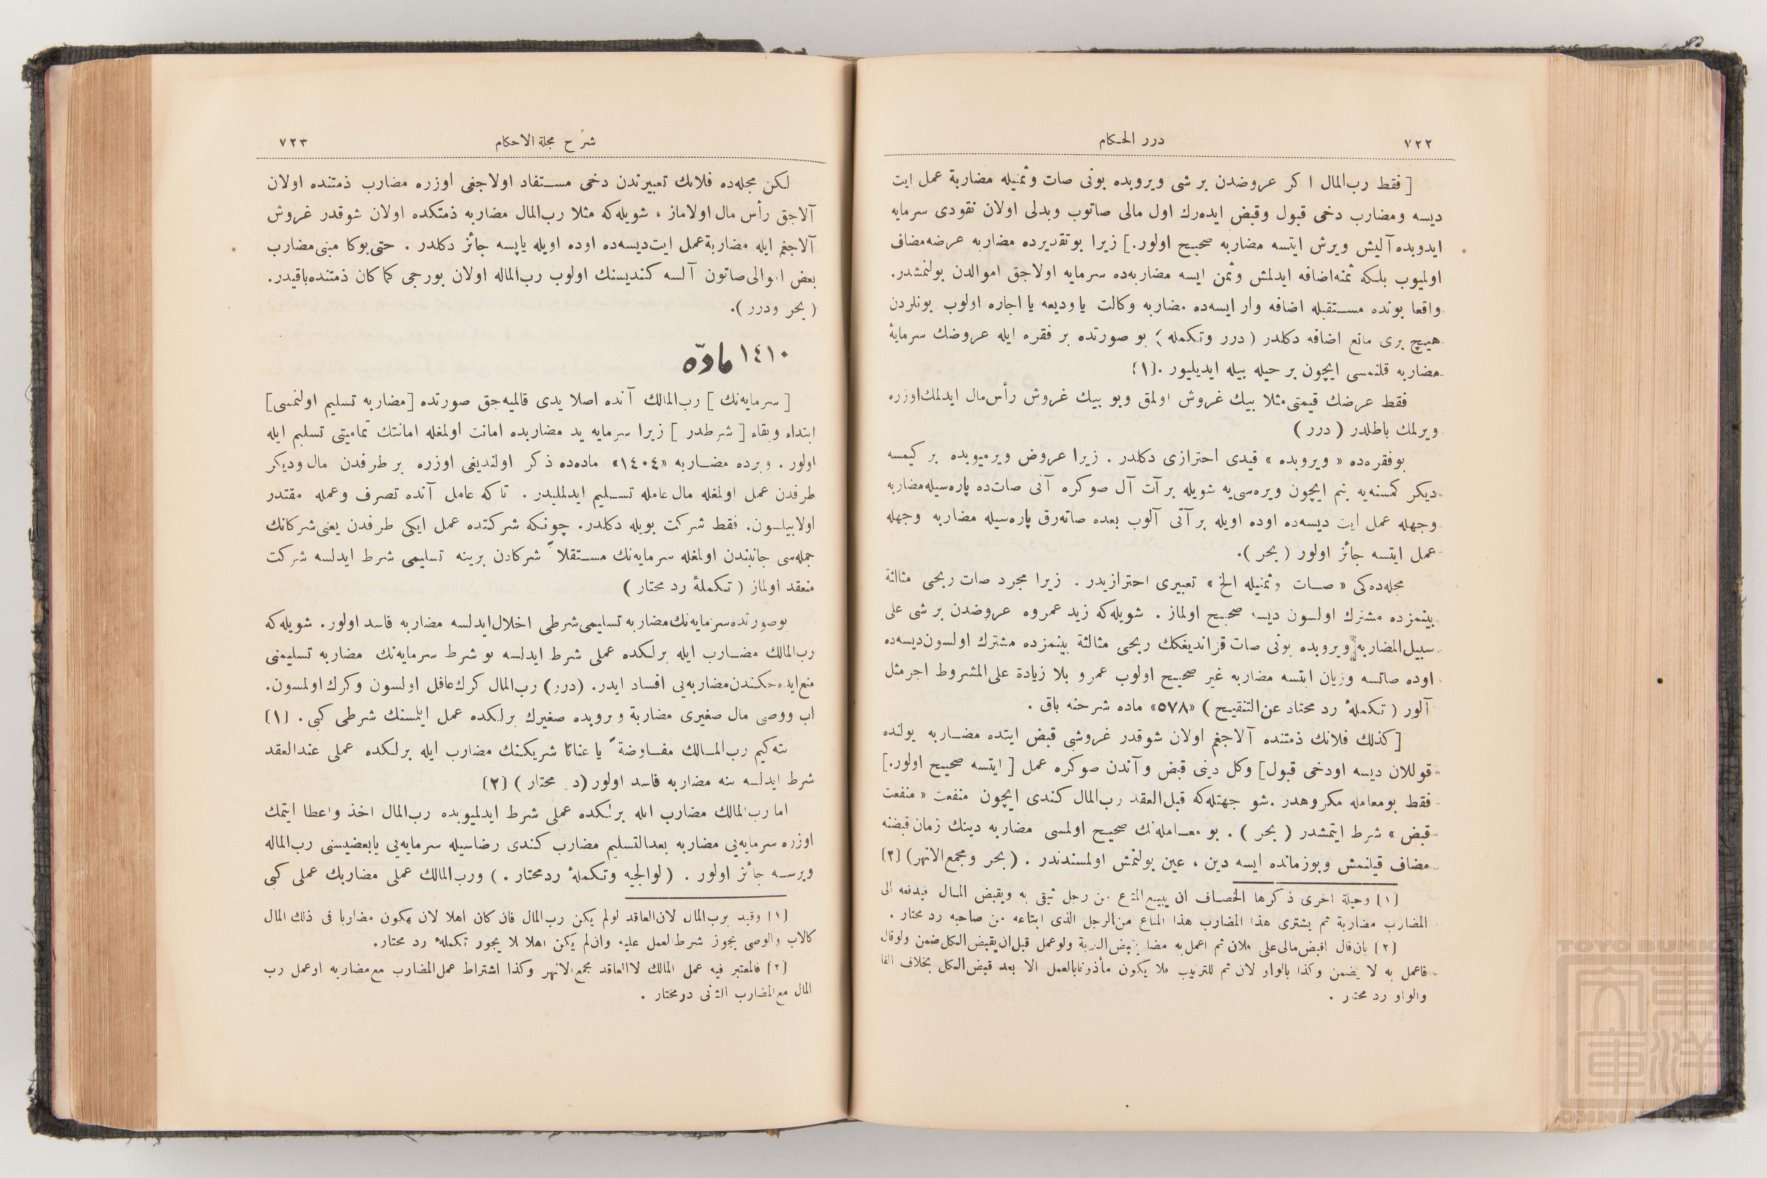 ٧٢٢
درر الحكام
[ فقط رب‌المال ا كر عروضدن بر شى ويروبده بونى صات وثمنيله مضاربة عمل ايت
ديسه ومضارب دخى قبول وقبض ايده‌رك اول مالى صاتوب وبدلى اولان نقودى سرمايه
ايدوبده آليش ويرش ايتسه مضاربه صحيح اولور.] زيرا بوتقديرده مضاربه عرضه‌مضاف
اولميوب بلكه ثمنه‌اضافه ايدلمش وثمن ايسه مضاربه‌ده سرمايه اولاجق اموالدن بولنمشدر.
واقعا بونده مستقبله اضافه وار ايسه‌ده مضاربه وكالت ياوديعه يا اجاره اولوب بونلردن
هيچ برى مانع اضافه دكلدر ( درر وتكمله ) بو صورتده بر فقره ايله عروضك سرمايهٔ
مضاربه قلنمسى ايچون بر حيله بيله ايديليور .(١)
فقط عرضك قيمتى‌مثلا بيك غروش اولمق وبو بيك غروش رأس‌مال ايدلمك‌اوزره
ويرلمك باطلدر ( درر )
بوفقره‌ده « ويروبده » قيدى احترازى دكلدر . زيرا عروض ويرميوبده بر كيمسه
ديكر كمسنه‌يه بنم ايچون ويره‌سى‌يه شويله برآت آل صوكره آنى صات‌ده پاره‌سيله‌مضاربه
وجهله عمل ايت ديسه‌ده اوده اويله بر آتى آلوب بعده صاته‌رق پاره‌سيله مضاربه وجهله
عمل ايتسه جائز اولور ( بحر ).
مجله‌ده‌كى « صات وثمنيله الخ » تعبيرى احترازيدر . زيرا مجرد صات ربحى مثالثة
بينمزده مشترك اولسون ديسه صحيح اولماز . شويله‌كه زيد عمروه عروضدن بر شى على
سبيل‌المضاربه ويروبده بونى صات قزانديغكك ربحى مثالثة بينمزده مشترك اولسون‌ديسه‌ده
اوده صاتسه وزيان ايتسه مضاربه غير صحيح اولوب عمرو بلا زيادة على‌المشروط اجرمثل
آلور ( تكملهٔ رد محتار عن‌التنقيح ) «٥٧٨» ماده شرحنه باق .
[ كذلك فلانك ذمتنده آلاجغم اولان شوقدر غروشى قبض ايتده مضاربه يولنده
قوللان ديسه اودخى قبول] وكل دينى قبض وآندن صوكره عمل [ ايتسه صحيح اولور.]
فقط بومعامله مكروهدر .شو جهتله‌كه قبل‌العقد رب‌المال كندى ايچون منفعت « منفعت
قبض » شرط ايتمشدر ( بحر ) . بو معامله‌نك صحيح اولمسى مضاربه دينك زمان‌قبضنه
مضاف قيلنمش وبوزمانده ايسه دين ، عين بولنمش اولمسندندر . ( بحر ومجمع‌الانهر) (٢)
(١) وحيلة اخرى ذكرها الخصاف ان يبيع المتاع من رجل يثق به ويقبض المال فيدفعه الى
المضارب مضاربة ثم يشترى هذا المضارب هذا المتاع من‌الرجل الذى ابتاعه من صاحبه رد محتار .
(٢) بان‌قال اقبض‌مالى‌على فلان ثم اعمل‌به مضاربة ولوعمل قبل‌ان‌يقبض‌الكل‌ضمن ولوقال
فاعمل به لا يضمن وكذا بالواو لان ثم للترتيب فلا يكون مأذونابالعمل الا بعد قبض‌الكل بخلاف الفا
والواو رد محتار .
شرح مجلة الاحكام
٧٢٣
لكن مجله‌ده فلانك تعبيرندن دخى مستفاد اولاجغى اوزره مضارب ذمتنده اولان
آلاجق رأس مال اولاماز ، شويله‌كه مثلا رب‌المال مضاربه ذمتكده اولان شوقدر غروش
آلاجغم ايله مضاربةعمل ايت‌ديسه‌ده اوده اويله ياپسه جائز دكلدر . حتى‌بوكا مبنى‌مضارب
بعض اموالى‌صاتون آلسه كنديسنك اولوب رب‌الماله اولان بورجى كما كان ذمتنده‌باقيدر.
( بحر ودرر ).
١٤١٠ ماده
[ سرمايه‌نك ] رب‌المالك آنده اصلا يدى قالميه‌جق صورتده [مضاربه تسليم اولنمسى]
ابتداء وبقاء [ شرطدر ] زيرا سرمايه يد مضاربده امانت اولمغله امانتك تماميتى تسليم ايله
اولور . وبرده مضاربه «١٤٠٤» ماده‌ده ذكر اولنديغى اوزره بر طرفدن مال وديكر
طرفدن عمل اولمغله مال عامله تسليم ايدلمليدر . تاكه عامل آنده تصرف وعمله مقتدر
اولابيلسون. فقط شركت بويله دكلدر. چونكه شركتده عمل ايكى طرفدن يعنى‌شركانك
جمله‌سى جانبندن اولمغله سرمايه‌نك مستقلاً شركادن برينه تسليمى شرط ايدلسه شركت
منعقد اولماز ( تكملهٔ رد محتار )
بوصورتده‌سرمايه‌نك‌مضاربه تسليمى‌شرطى اخلال‌ايدلسه مضاربه فاسد اولور. شويله‌كه
رب‌المالك مضارب ايله برلكده عملى شرط ايدلسه بو شرط سرمايه‌نك مضاربه تسليمنى
منع‌ايده‌جكندن‌مضاربه‌يى افساد ايدر. (درر) رب‌المال كرك‌عاقل اولسون وكرك اولمسون.
اب ووصى مال صغيرى مضاربة ويروبده صغيرك برلكده عمل ايلمسنك شرطى كبى . (١)
نته‌كيم رب‌المالك مفاوضةً يا عنانا شريكنك مضارب ايله برلكده عملى عندالعقد
شرط ايدلسه ينه مضاربه فاسد اولور (در محتار ) (٢)
اما رب‌المالك مضارب ايله برلكده عملى شرط ايدلميوبده رب‌المال اخذ واعطا ايتمك
اوزره سرمايه‌يى مضاربه بعدالتسليم مضارب كندى رضاسيله سرمايه‌يى يابعضيسنى رب‌الماله
ويرسه جائز اولور . (لوالجيه وتكملهٔ ردمحتار .) ورب‌المالك عملى مضاربك عملى كبى
(١) وقيد برب‌المال لان‌العاقد لولم يكن رب‌المال فان كان اهلا لان يكون مضاربا فى ذلك المال
كالاب والوصى يجوز شرط‌العمل عليه وان‌لم يكن اهلا لا يجوز تكملهٔ رد محتار.
(٢) فالمعتبر فيه عمل المالك لاالعاقد مجمع‌الانهر وكذا اشتراط عمل‌المضارب مع‌مضاربه اوعمل رب
المال مع‌المضارب الثانى درمختار .
TOYO BUNKO